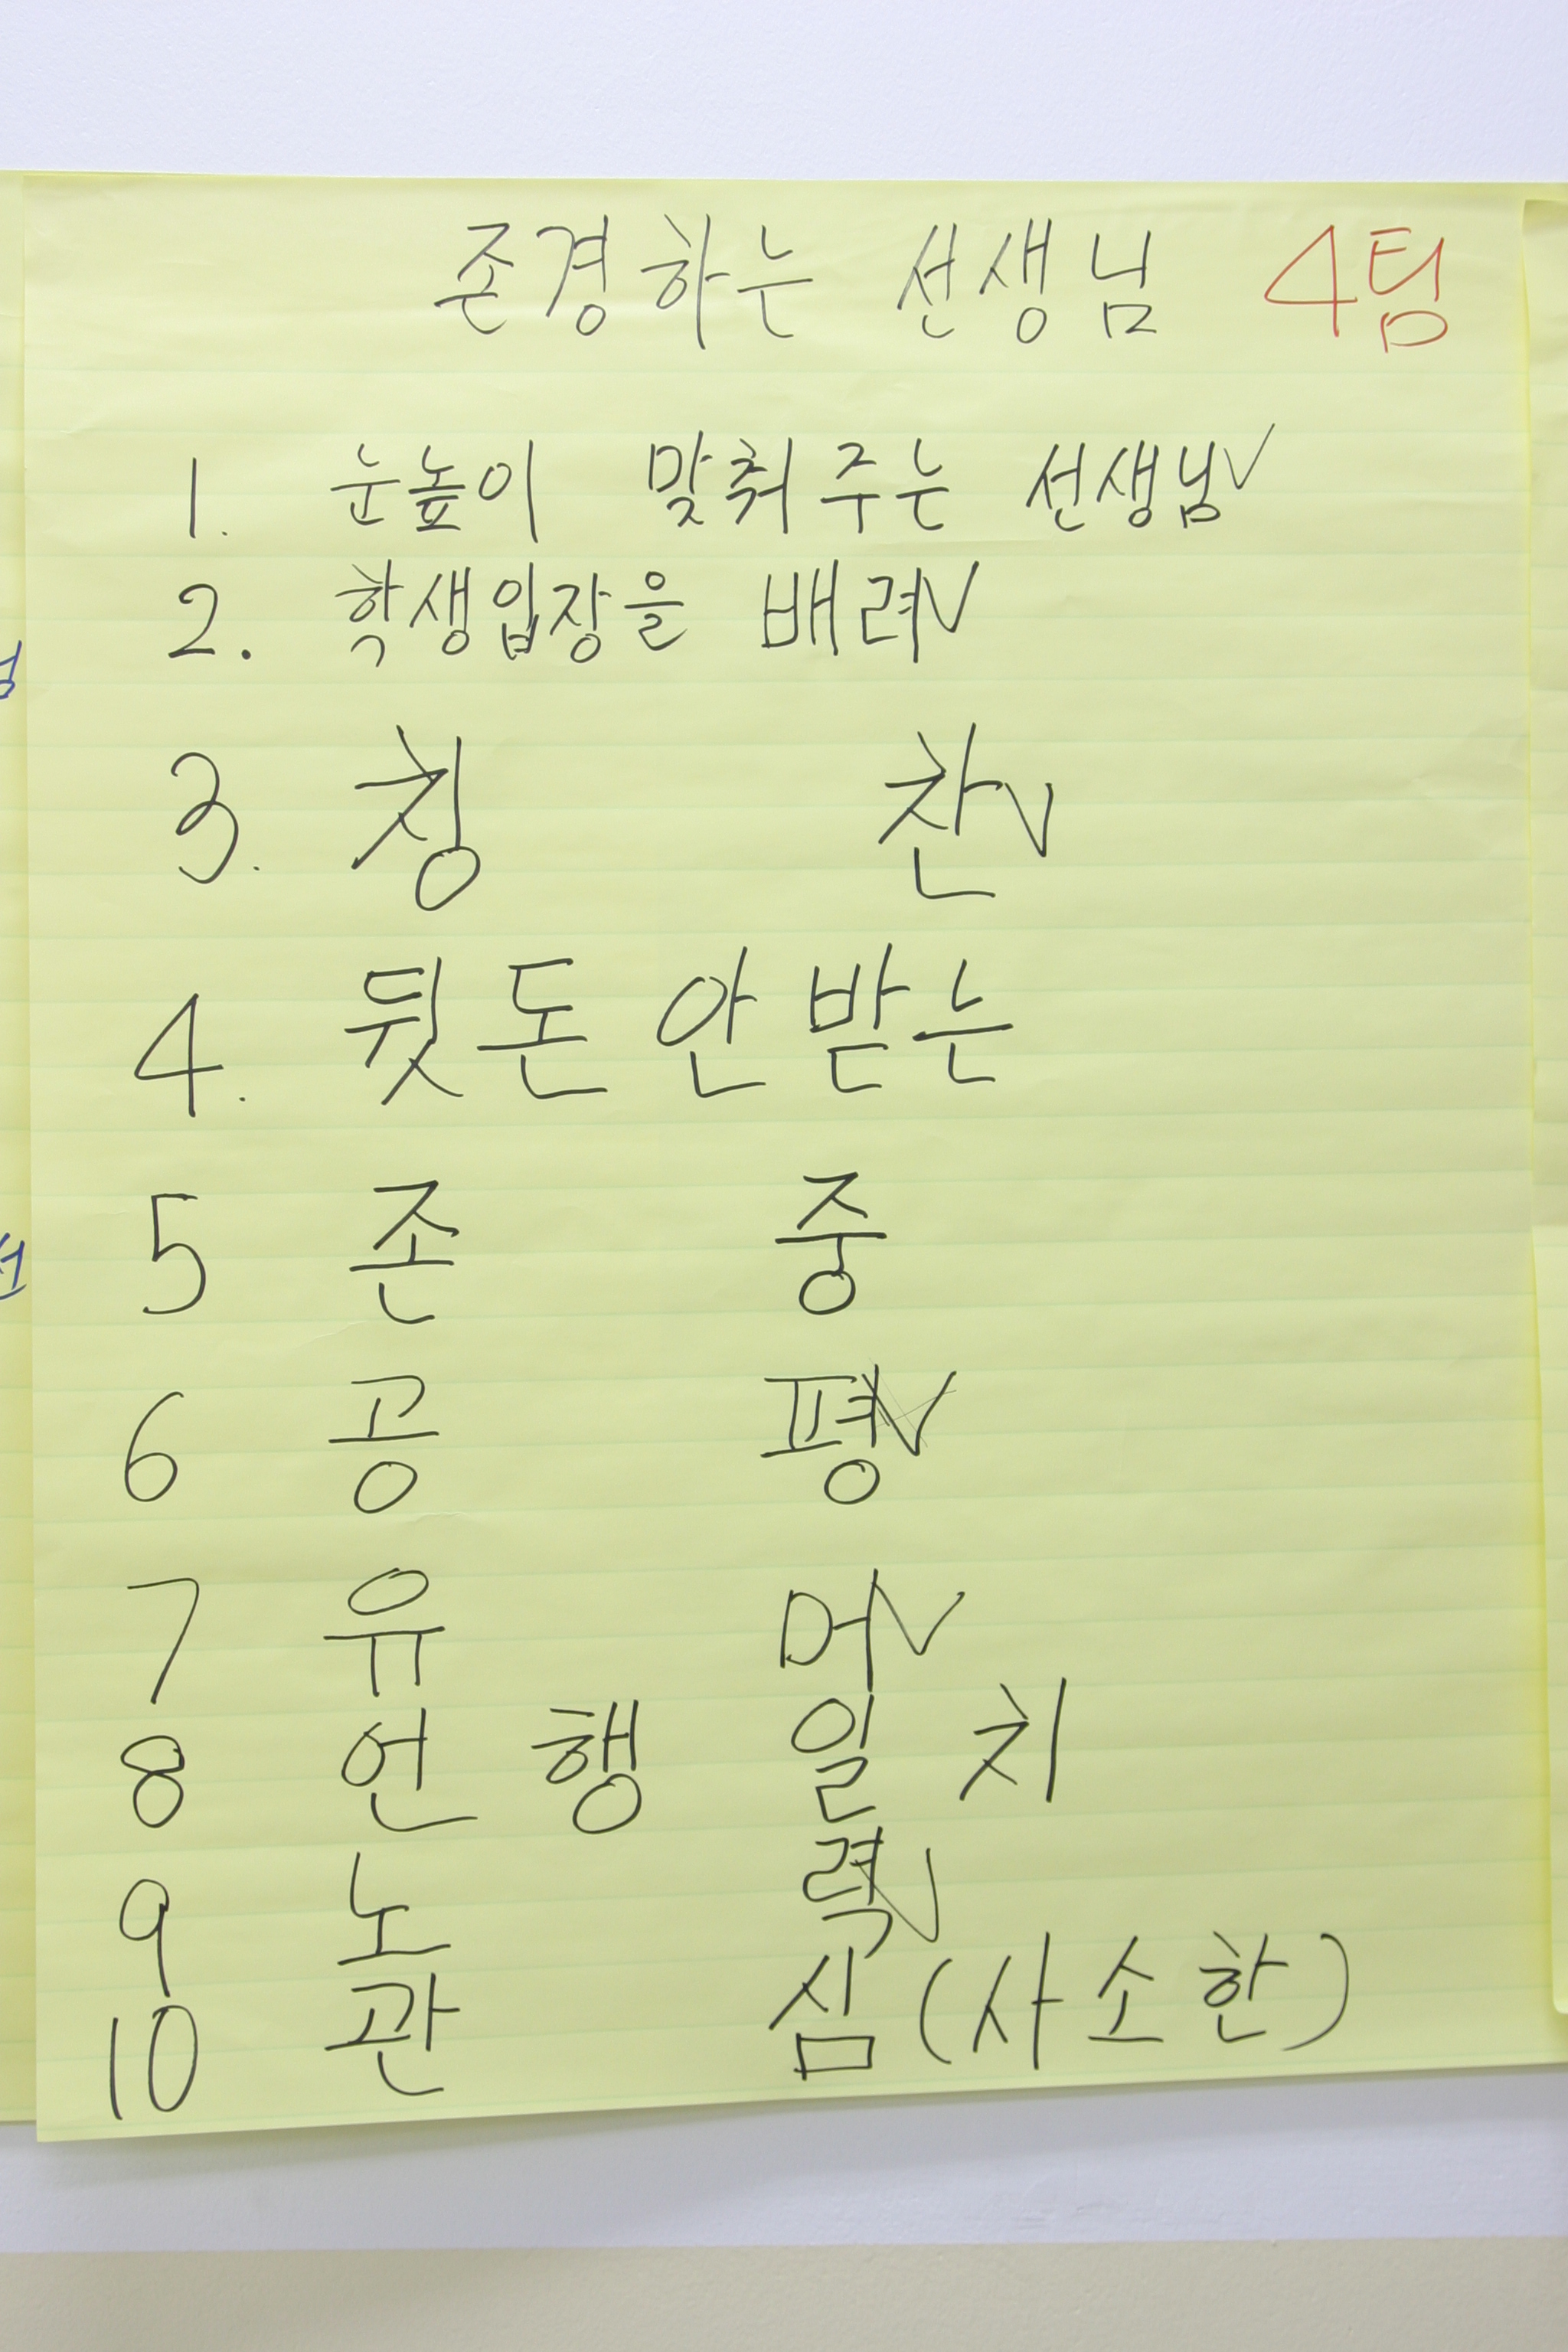 존경하는 선생님 4팀
1. 눈높이 맞춰 주는 선생님✓
2. 학생입장을 배려✓
3. 칭 찬✓
4. 뒷돈 안 받는
5 존 중
6 공 평✓
7 유 머✓
8 언 행 일 치
9 노 력✓
10 관 심 (사소한)